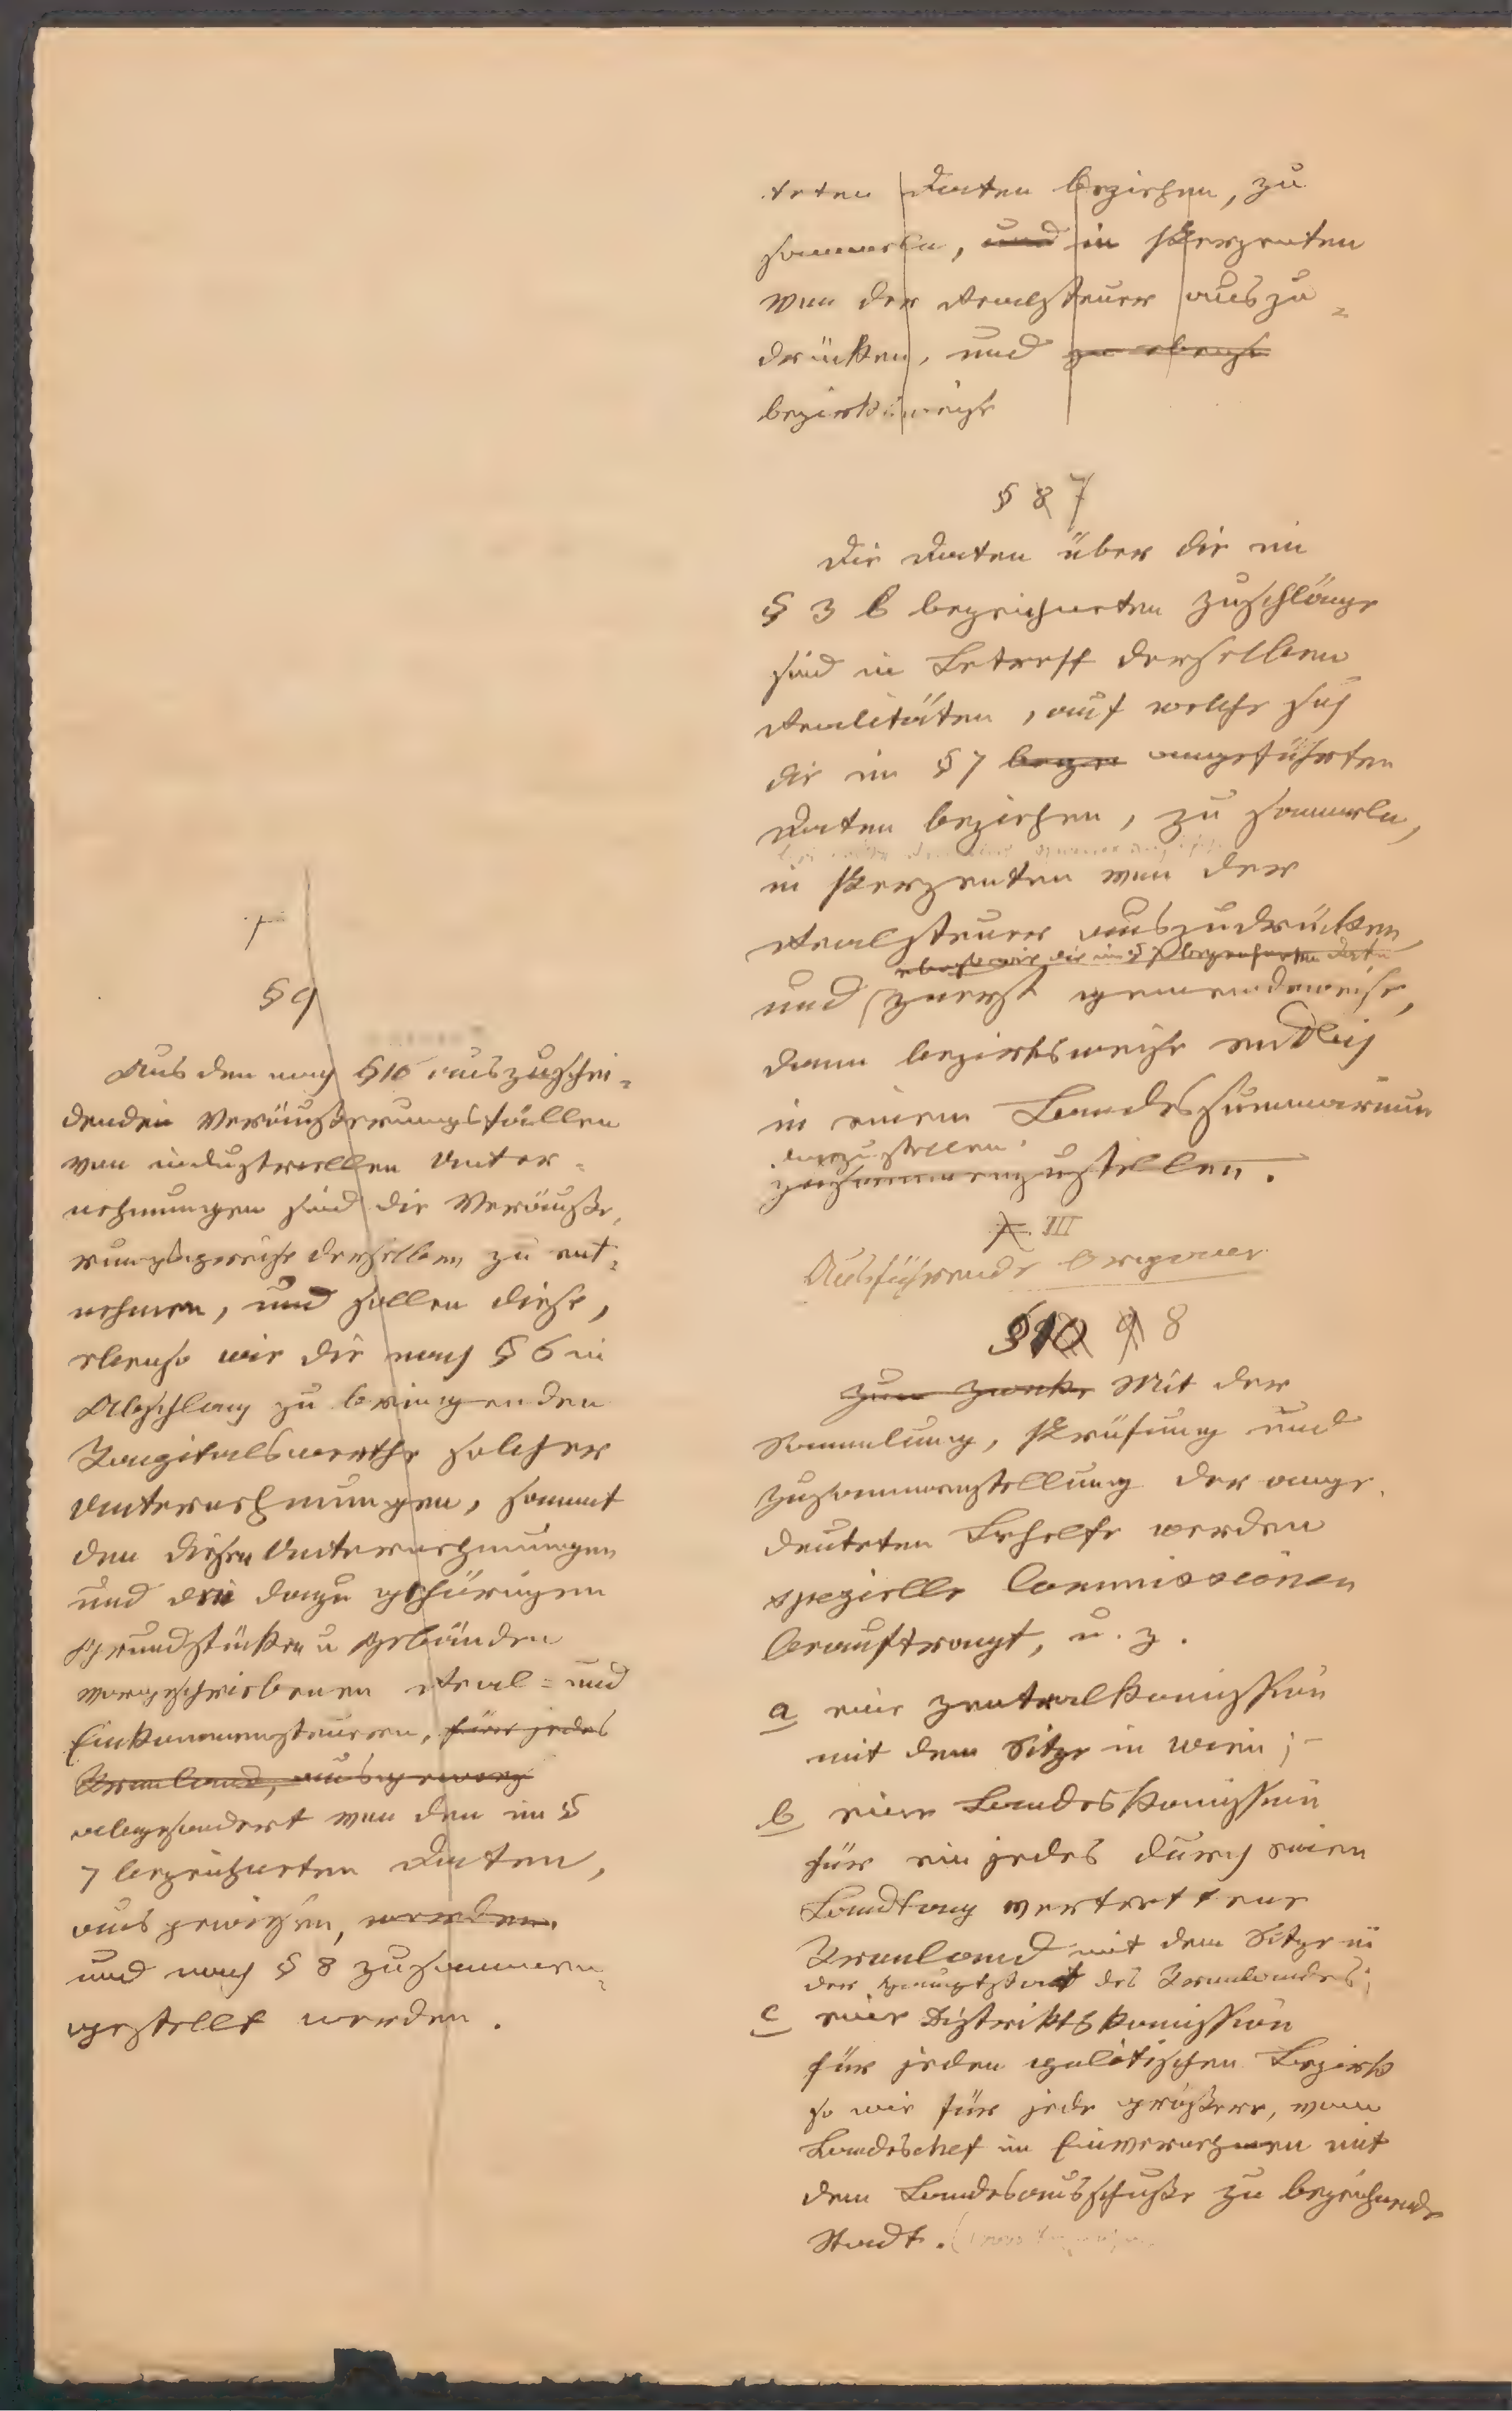 teten Daten beziehen, zu
sammeln, und in Perzenten
von der Realsteuer auszu=
drücken, und zu ebenso
bezirksweise
§ 8 7
Die Daten über die im
§ 3 b bezeichneten Zuschläge
sind in Betreff derselben
Realitäten, auf welche sich
die im § 7 beze angeführten
Daten beziehen, zu sammeln,
in Perzenten von der
Realsteuer auszudrücken,
ebenso wie die im § 7 bezeichneten Daten
und zuerst gemeindeweise,
dann bezirksweise endlich
in einem Landessummarium
darzustellen.
zusammenzustellen.
III
Ausführende Organe
§ 10 9 8
Zum Zwecke Mit der
Sammlung, Prüfung und
Zusammenstellung der ange=
deuteten Behelfe werden
spezielle Commissionen
beauftragt, u. z.
a eine Zentralkomission
mit dem Sitze in Wien;
b eine Landeskomission
für ein jedes durch einen
Landtag vertrettene
Kronland mit dem Sitze in
der Hauptstadt des Kronlandes;
c eine Distriktskomission
für jeden politischen Bezirk
so wie für jede größere, vom
Landeschef im Einvernehmen mit
dem Landesausschuße zu bezeichnende
Stadt.
§ 9
Aus den nach § 10 auszuschei=
denden Veräußerungsfällen
von industriellen Unter=
nehmungen sind die Veräuße=
rungspreise derselben zu ent=
nehmen, und sollen diese,
ebenso wie die nach § 6 in
Abschlag zu bringenden
Kapitalswerthe solcher
Unternehmungen, sammt
den diesen Unternehmungen
und den dazu gehörigen
Grundstücken u Gebäuden
vorgeschriebenen Real= und
Einkommensteuern, für jedes
Kronland, ausgewies
abgesondert von den im §
7 bezeichneten Daten,
ausgewiesen, werden.
und nach § 8 zusammen=
gestellt werden.